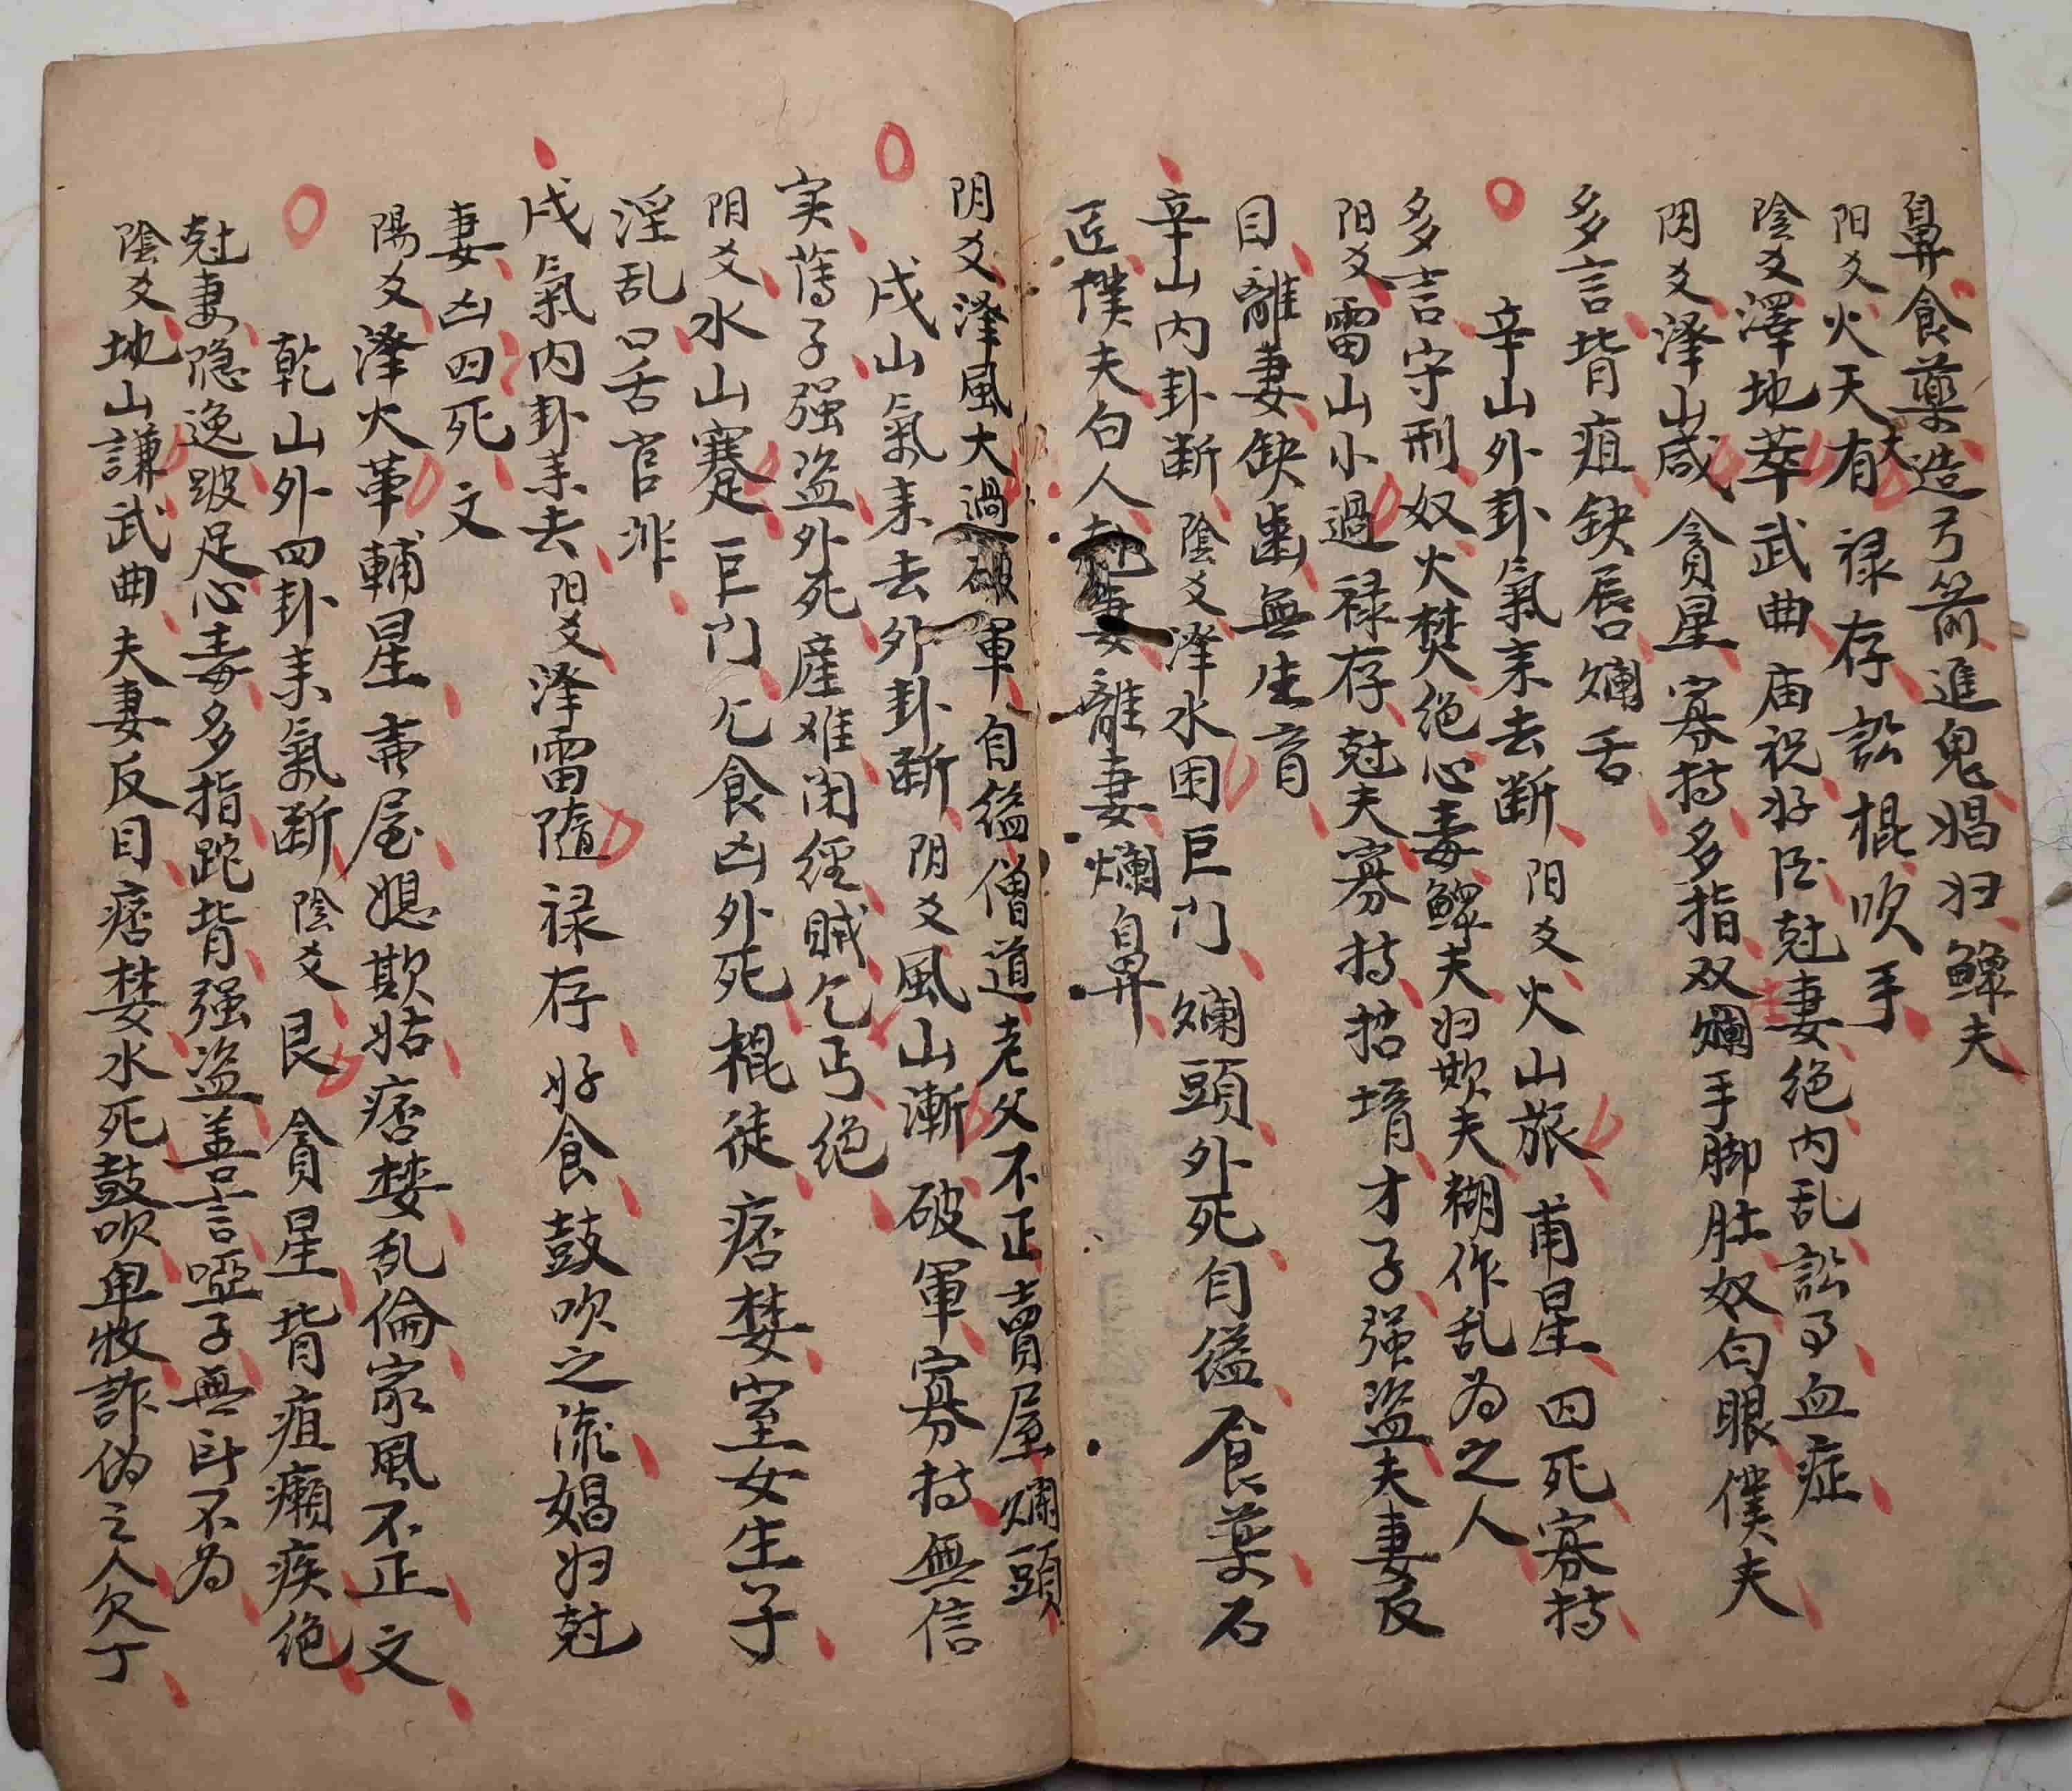 鼻食藥造弓箭進鬼娼妇鰥夫
阳爻火天大有 禄存訟棍吹手
陰爻澤地萃武曲庙祝好臣尅妻絶内乱訟事血症
阴爻泽山咸 貪星寡特多指双爛手脚肚奴白眼僕夫
多言背疽缺唇爛舌
辛山外卦氣来去断 阳爻火山旅 甫星囚死寡特
多言守刑奴火焚絶心毒鰥夫妇欺夫糊作乱为之人
阳爻雷山小過禄存尅夫寡特招壻才子强盗夫妻反
目離妻缺齒無生育
辛山内卦断 陰爻泽水困巨门 爛頭外死自縊食藥石
匠僕夫白人尅妻離妻爛鼻
阴爻泽風大過破軍自縊僧道老父不正賣屋爛頭
戌山氣来去外卦断 阴爻風山漸 破軍寡特無信
实蓐子强盗外死産难闭經賊乞丐绝
阴爻水山蹇巨门乞食凶外死棍徒痞婪室女生子
淫乱口舌官非
戌氣内卦来去 阳爻泽雷隨禄存好食鼓吹之流娼妇尅
妻凶囚死 文
陽爻泽火革輔星賣屋媳欺姑痞婪乱倫家風不正文
乾山外四卦来氣断 陰爻艮 貪星背疽癩疾绝
尅妻隐逸跛足心毒多指跎背强盗善言啞子無卧不为
陰爻地山謙武曲夫妻反目痞婪水死鼓吹卑牧詐伪之人欠丁